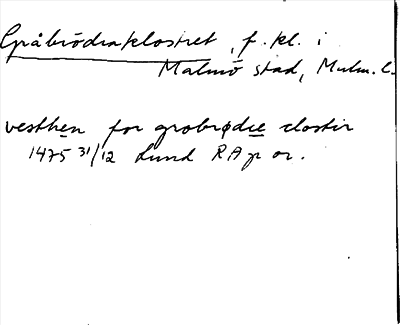 Gråbrödraklostret, f. kl. i
Malmö stad, Malm. l.
vesthen for grobrødre closter
1475 31/12 Lund RAp or.